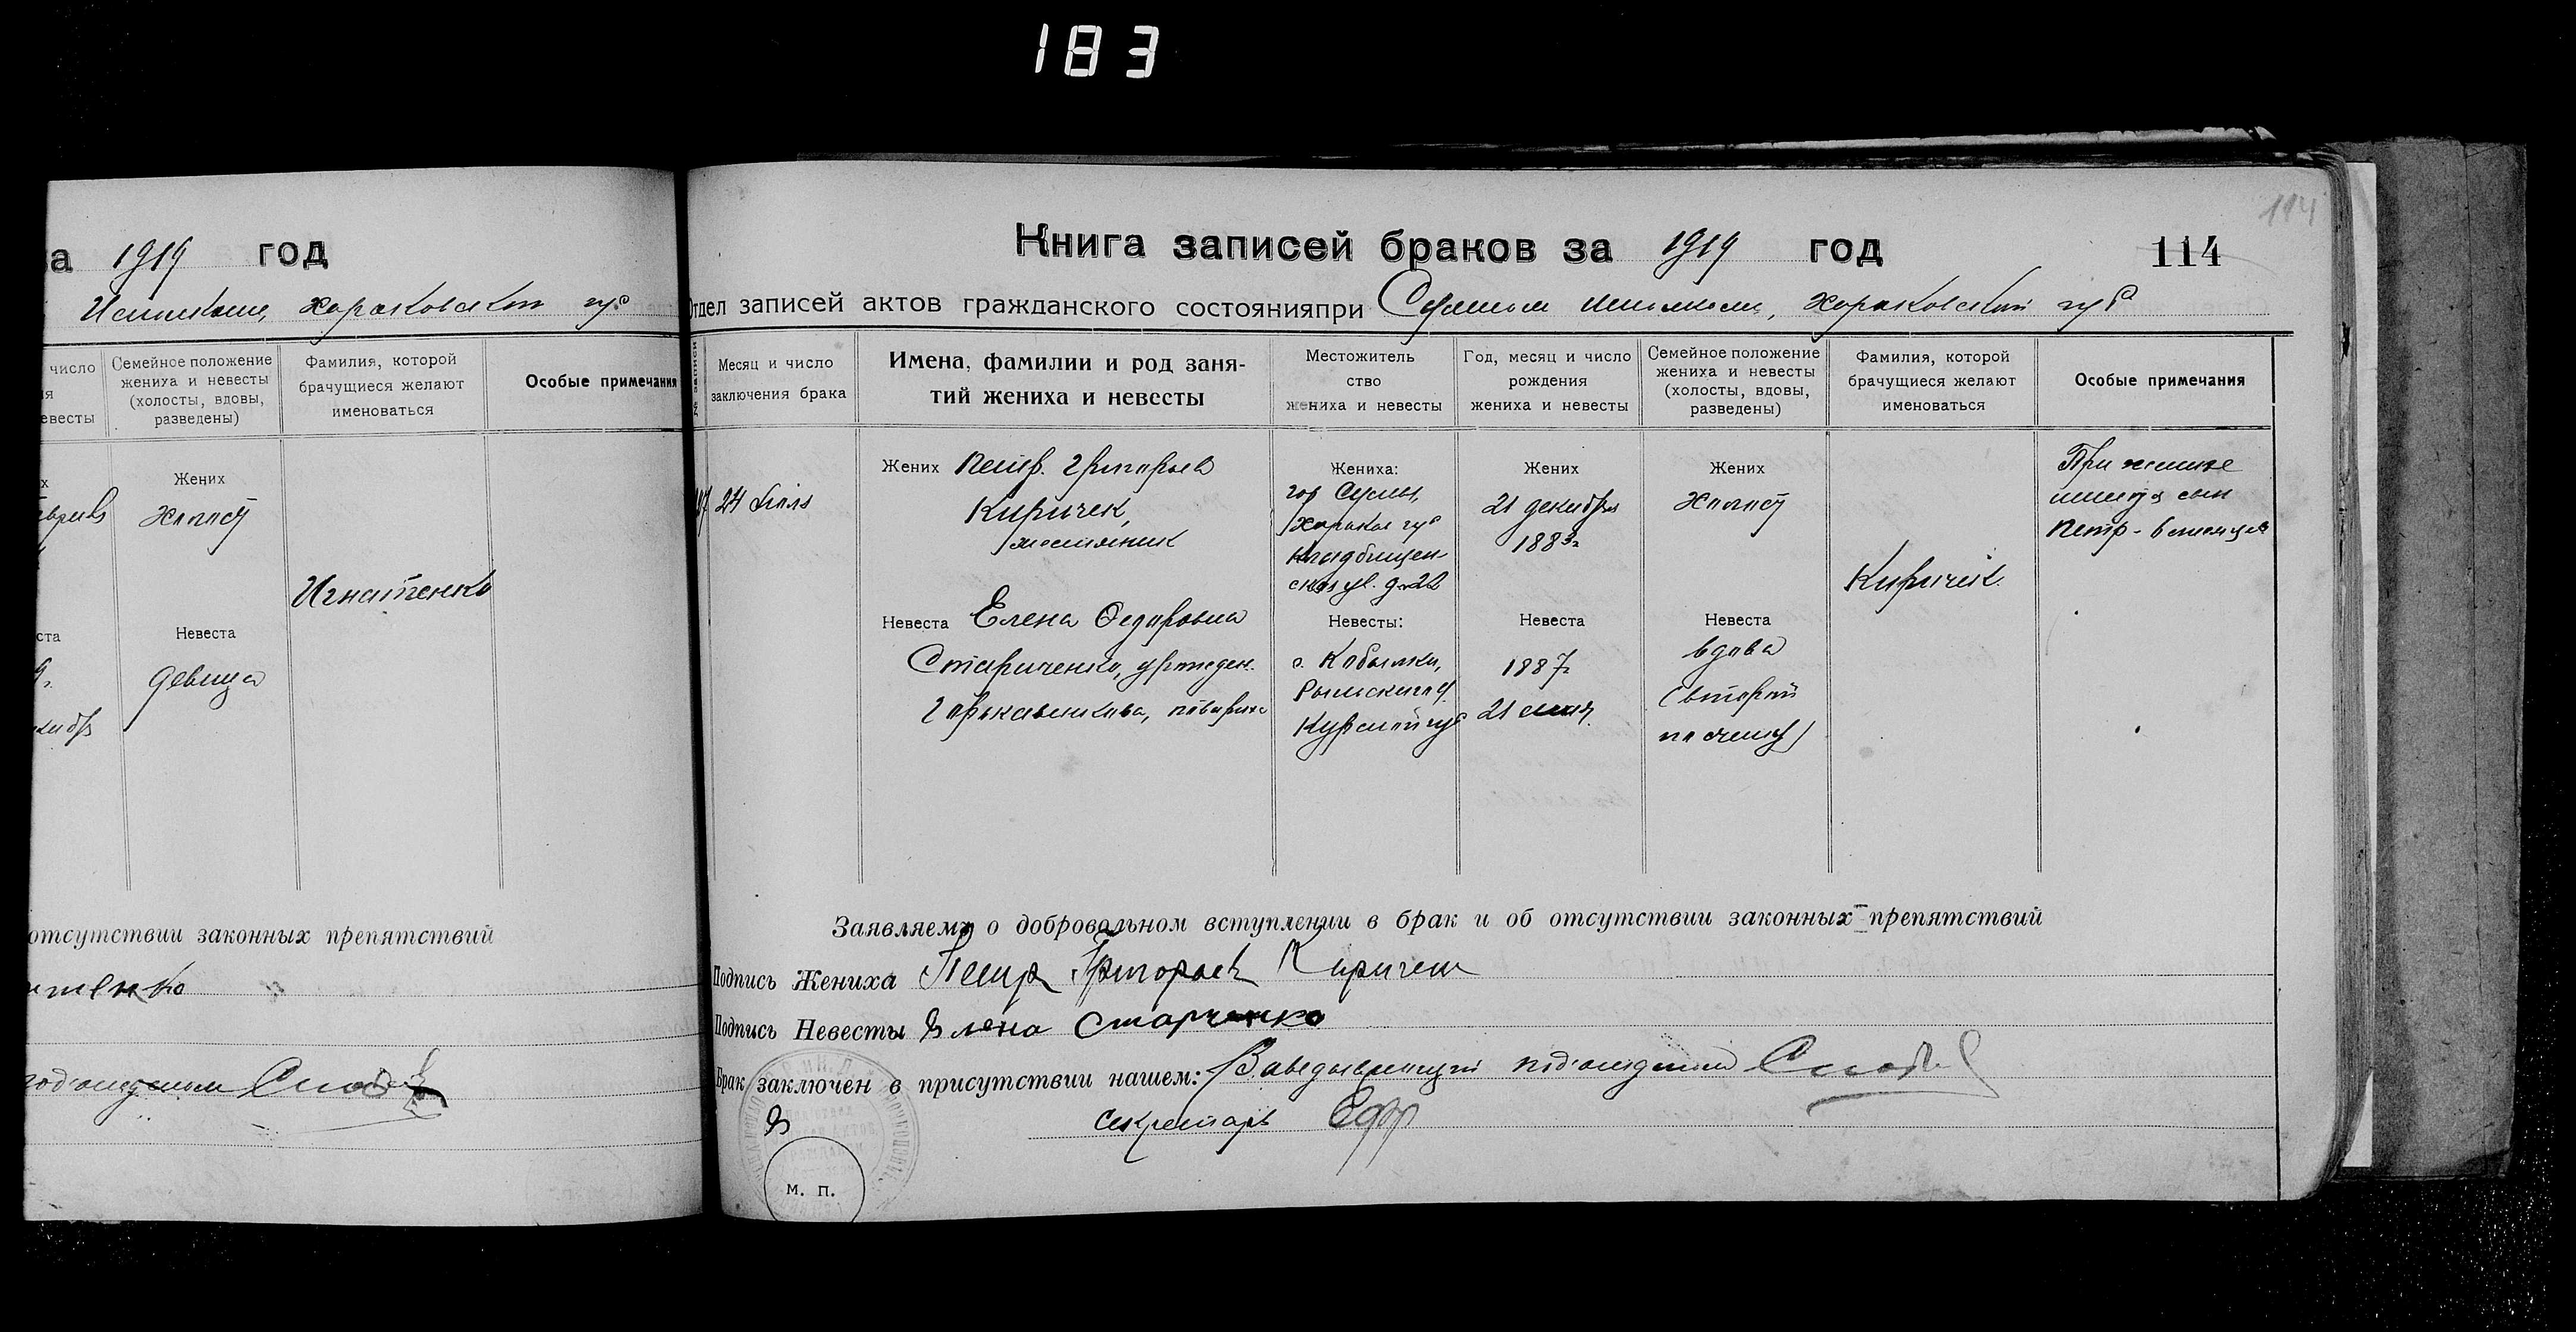 183
за 1919 год
Исполкоме, Харьковской губ
число
Семейное положение
жениха и невесты
(холосты, вдовы,
разведены)
Фамилия, которой
брачущиеся желают
именоваться
Особые примечания
Жених
Холост
Игнатенко
Невеста
девица
отсутствии законных препятствий
114
Книга записей браков за 1919 год
114
Отдел записей актов гражданского состояния при Сумском Исполкоме, Харьковской губ
№ записи
Месяц и число
заключения брака
Имена, фамилии и род заня-
тий жениха и невесты
Местожитель
ство
жениха и невесты
Год, месяц и число
рождения
жениха и невесты
Семейное положение
жениха и невесты
(холосты, вдовы,
разведены)
Фамилия, которой
брачущиеся желают
именоваться
Особые примечания
24 Июля
Жених Петр. Григорьев
Киричек,
Жениха:
гор Сумы,
Харьков губ
Кладбищен-
ская ул. д. 22
Жених
21 декабря
1883г
Жених
Холост
Киричек.
При женихе
сын
Петр - 6 месяцев
Невеста Елена Федоровна
Старченко, урожден.
Горькавченкова, повариха
Невесты:
с. Кобылки,
Рыльского у
Курской губ
Невеста
1887г
21 мая
Невеста
вдова
(второй
по счету)
Заявляем о добровольном вступлении в брак и об отсутствии законных препятствий
Подпись Жениха Петр Григорьев Киричек
Подпись Невесты Елена Старченко
Брак заключен в присутствии нашем: Заведывающий подотделом
секретарь
м. п.